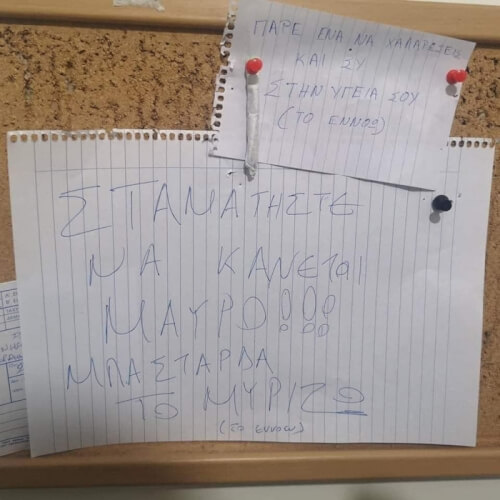 ΠΑΡΕ ΕΝΑ ΝΑ ΧΑΛΑΡΩΣΕΙΣ
ΚΑΙ ΣΥ
ΣΤΗΝ ΥΓΕΙΑ ΣΟΥ
(ΤΟ ΕΝΝΟΩ)
ΣΤΑΜΑΤΗΣΤΕ
ΝΑ ΚΑΝΕΤαΙ
ΜΑΥΡΟ!!!
ΜΠΑΣΤΑΡΔΑ
ΤΟ ΜΥΡΙΖΩ
(το εννοω)